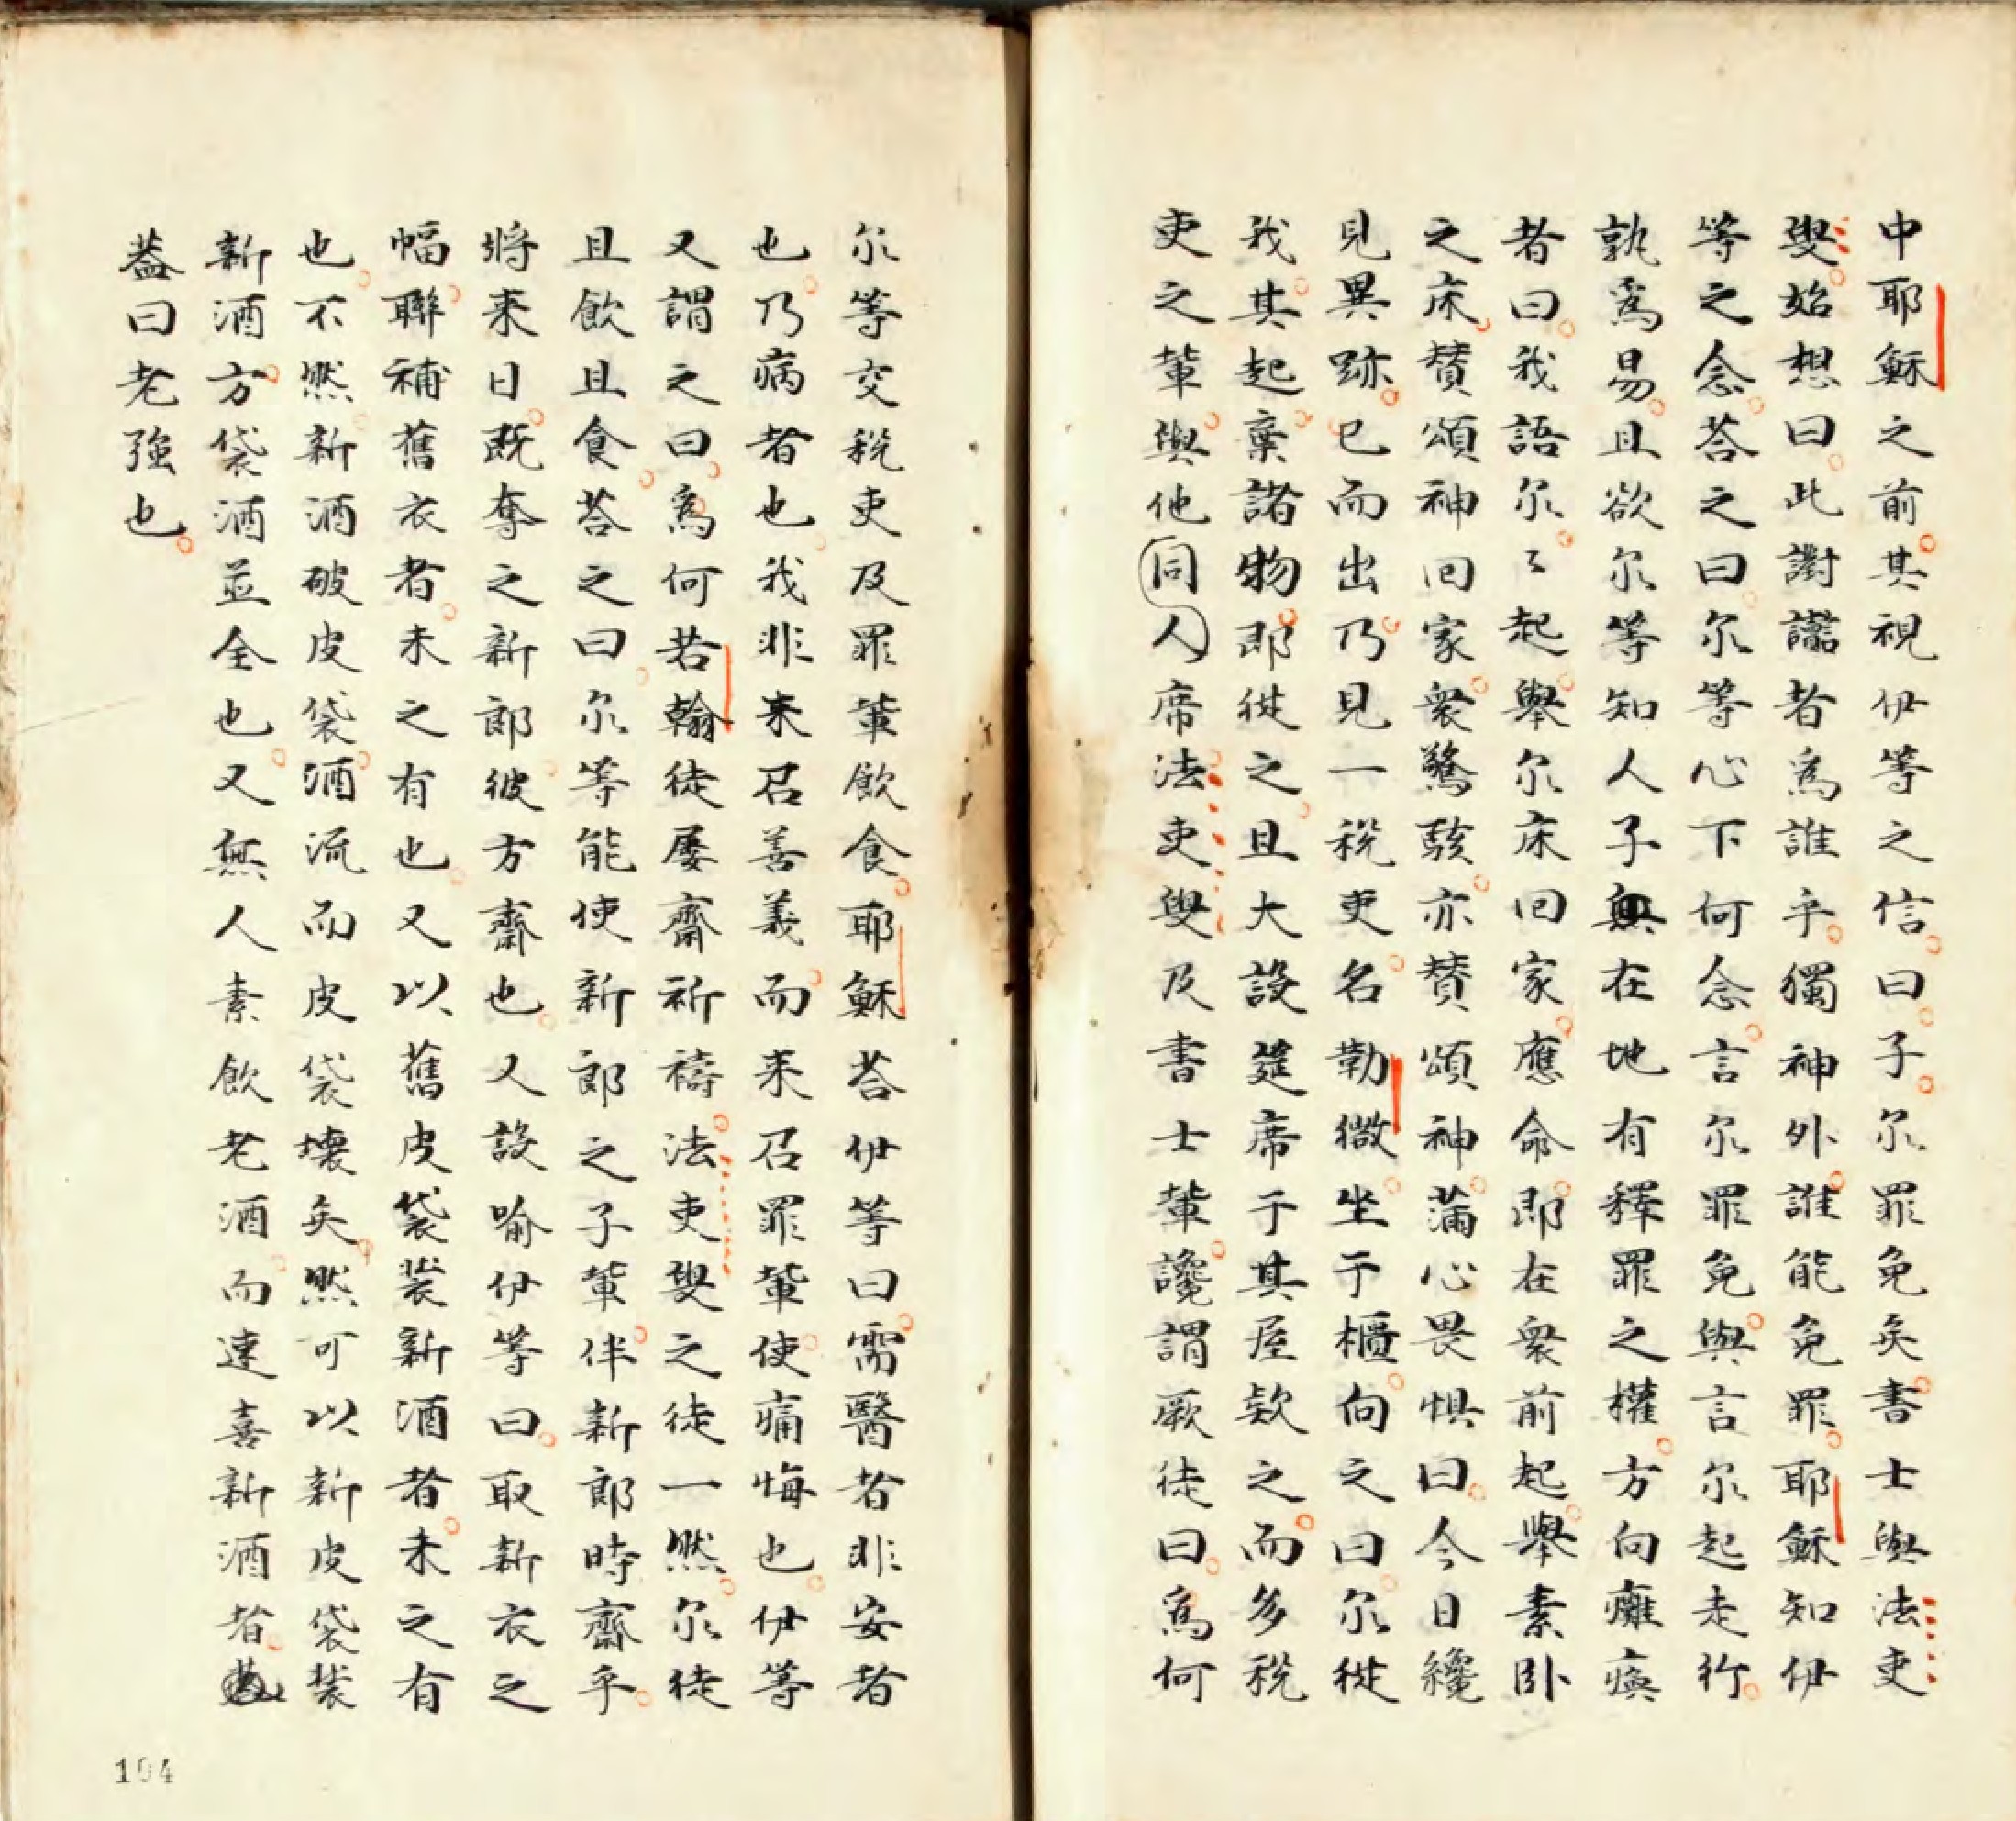 中耶穌之前其視伊等之信曰子尔罪免矣書士與法吏
叟始想曰此對讟者爲誰乎獨神外誰能免罪耶穌知伊
等之念荅之曰尔等心下何念言尔罪免與言尔起走行
孰爲易且欲尔等知人子在地有釋罪之權方向癱瘓
者曰我語尔〻起舉尔床回家應命即在衆前起舉素卧
之床賛頌神回家衆驚駭亦賛頌神滿心畏惧曰今日纔
見異跡已而出乃見一稅吏名勒微坐于櫃向之曰尔從
我其起棄諸物即從之且大設筵席于其屋欵之而多稅
吏之輩與他同人席法吏叟及書士輩讒謂厥徒曰爲何
尔等交稅吏及罪輩飲食耶穌荅伊等曰需醫者非安者
也乃病者也我非来召善義而来召罪輩使痛悔也伊等
又謂之曰爲何若翰徒屡齋祈禱法吏叟之徒一然尔徒
且飲且食荅之曰尔等能使新郎之子輩伴新郎時齋乎
將来日既奪之新郎彼方齋也又設喻伊等曰取新衣之
幅聯補舊衣者未之有也又以舊皮袋装新酒者未之有
也不然新酒破皮袋酒流而皮袋壊矣然可以新皮袋装
新酒方袋酒並全也又無人素飲老酒而速喜新酒者
葢曰老強也
104